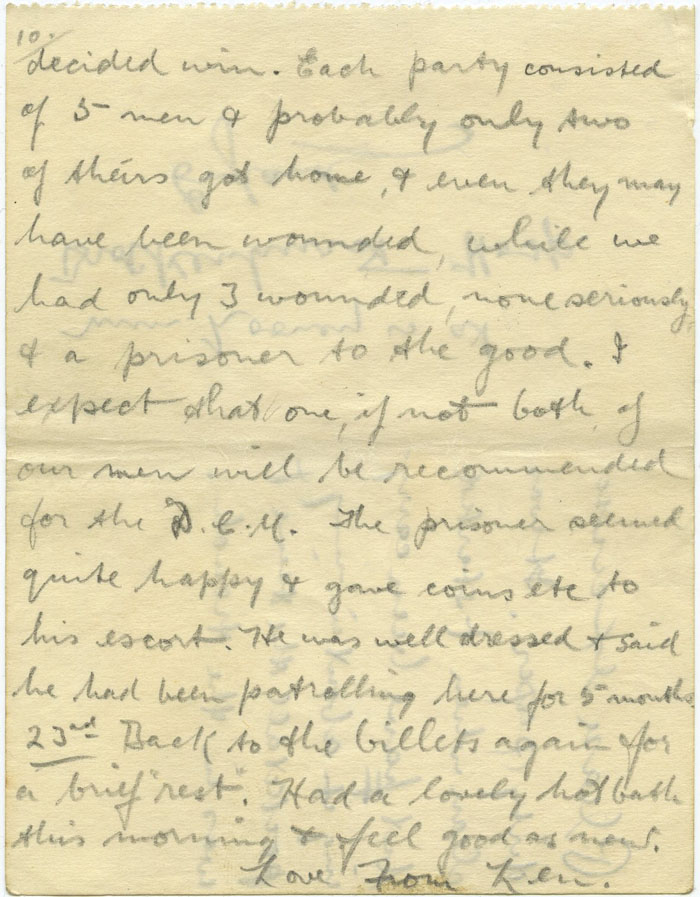 10.
decided win. Each party consisted
of 5 men & probably only two
of theirs got home, & even they may
have been wounded, while we
had only 3 wounded, none seriously
& a prisoner to the good. I
expect that one, if not both, of
our men will be recommended
for the D.C.M. The prisoner seemed
quite happy & gave coins etc to
his escort. He was well dressed & said
he had been patrolling here for 5 months.
23rd Back to the billets again for
a brief "rest". Had a lovely hot bath
this morning & feel good as new.
Love From Ken.